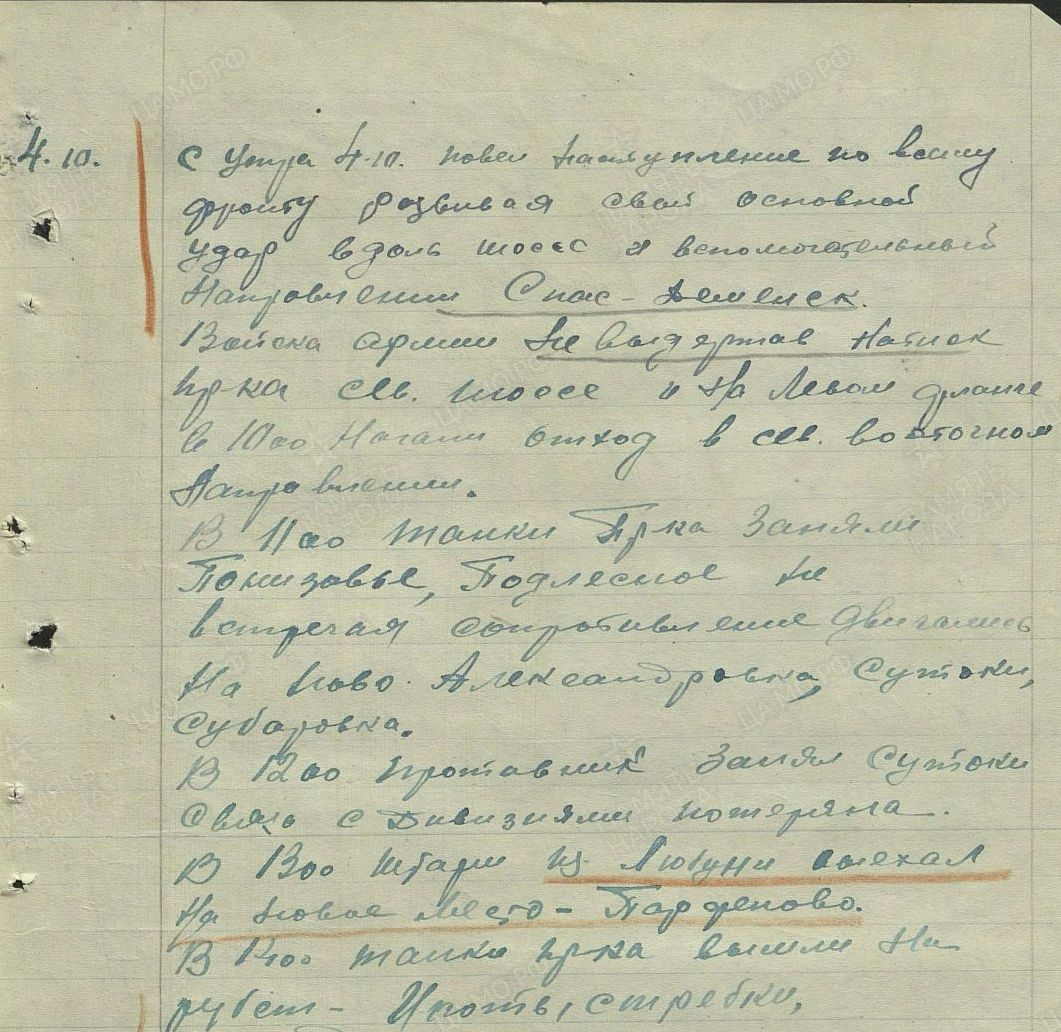 4.10. с утра 4.10. повел наступление по всему
фронту развивая свой основной
удар вдоль шоссе и вспомогательный
Направлении Спас-Деменск.
Войска армии не выдержав натиск
пр-ка сев. шоссе и на левом фланге
в 10 00 Начали отход в сев. восточном
Направлении.
В 11 00 танки Пр-ка Заняли
Понизовье, Подлесное не
встречая сопротивление двигались
На Ново. Александровка, Сутоки,
Суборовка.
В 12 00 противник Занял Сутоки
Связь с дивизиями потеряна.
В 13 00 штарм из выехал
На новое место - Парфеново.
В танки пр-ка вышли На
рубеж - Ипоть,